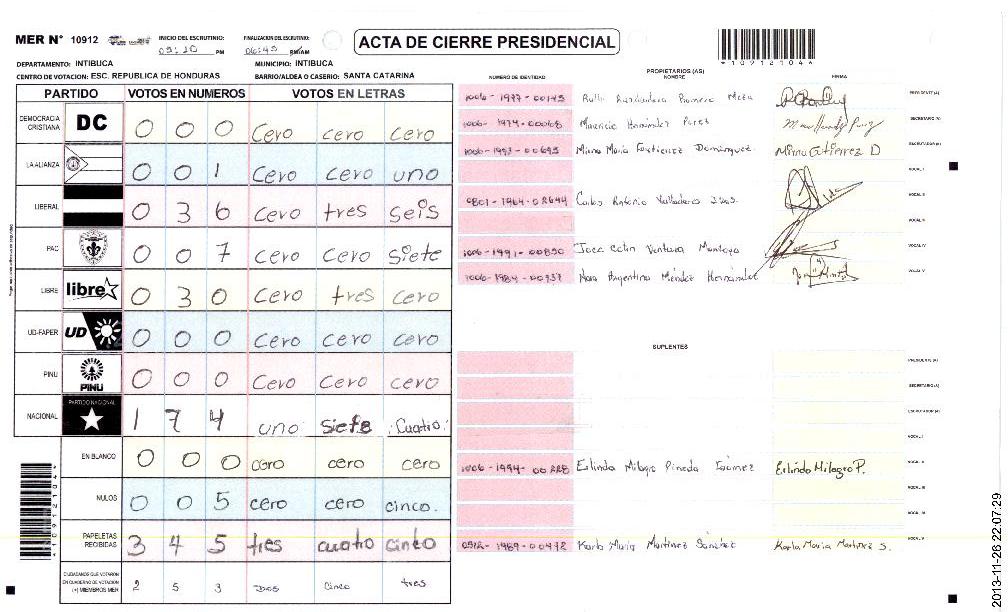 MER N° 10912 INICIO DEL ESCRUTINIO: 05:10 PM FINALIZACION DEL ESCRUTINIO: 06:45 PM/AM
ACTA DE CIERRE PRESIDENCIAL
*10912104*
DEPARTAMENTO: INTIBUCA MUNICIPIO: INTIBUCA
CENTRO DE VOTACION: ESC. REPUBLICA DE HONDURAS BARRIO/ALDEA O CASERIO: SANTA CATARINA
PARTIDO VOTOS EN NUMEROS VOTOS EN LETRAS
DEMOCRACIA CRISTIANA DC 0 0 0 Cero cero cero
LA ALIANZA 0 0 1 Cero Cero uno
LIBERAL 0 3 6 Cero tres seis
PAC 0 0 7 Cero Cero Siete
LIBRE libre 0 3 0 Cero tres cero
UD-FAPER UD 0 0 0 Cero Cero cero
PINU PINU 0 0 0 Cero Cero cero
NACIONAL PARTIDO NACIONAL 1 7 4 uno siete Cuatro
EN BLANCO 0 0 0 cero cero cero
NULOS 0 0 5 cero cero cinco.
PAPELETAS RECIBIDAS 3 4 5 tres cuatro cinco
CIUDADANOS QUE VOTARON EN CUADERNO DE VOTACION (+) MIEMBROS MER 2 5 3 Dos Cinco tres
*10912104*
PROPIETARIOS (AS)
NUMERO DE IDENTIDAD NOMBRE FIRMA
PRESIDENTE (A)
1006-1974-00068 Mauricio Hernández SECRETARIO (A)
1006-1993-00695 Mirna Maria Gutierrez Domínguez. Mirna Gutierrez D ESCRUTADOR (A)
VOCAL I
0801-1964-02644 Carlos Antonio Valladares VOCAL II
VOCAL III
1006-1991-00850 Ventura Montoya VOCAL IV
1006-1984-00937 Argentina Méndez Hernández VOCAL V
SUPLENTES
PRESIDENTE (A)
SECRETARIO (A)
ESCRUTADOR (A)
VOCAL I
1006-1994-00228 Erlinda Milagro Pineda Gómez Erlinda Milagro P. VOCAL II
VOCAL III
VOCAL IV
Karla Maria Martinez Sánchez Karla Maria Martinez S. VOCAL V
2013-11-26 22:07:29